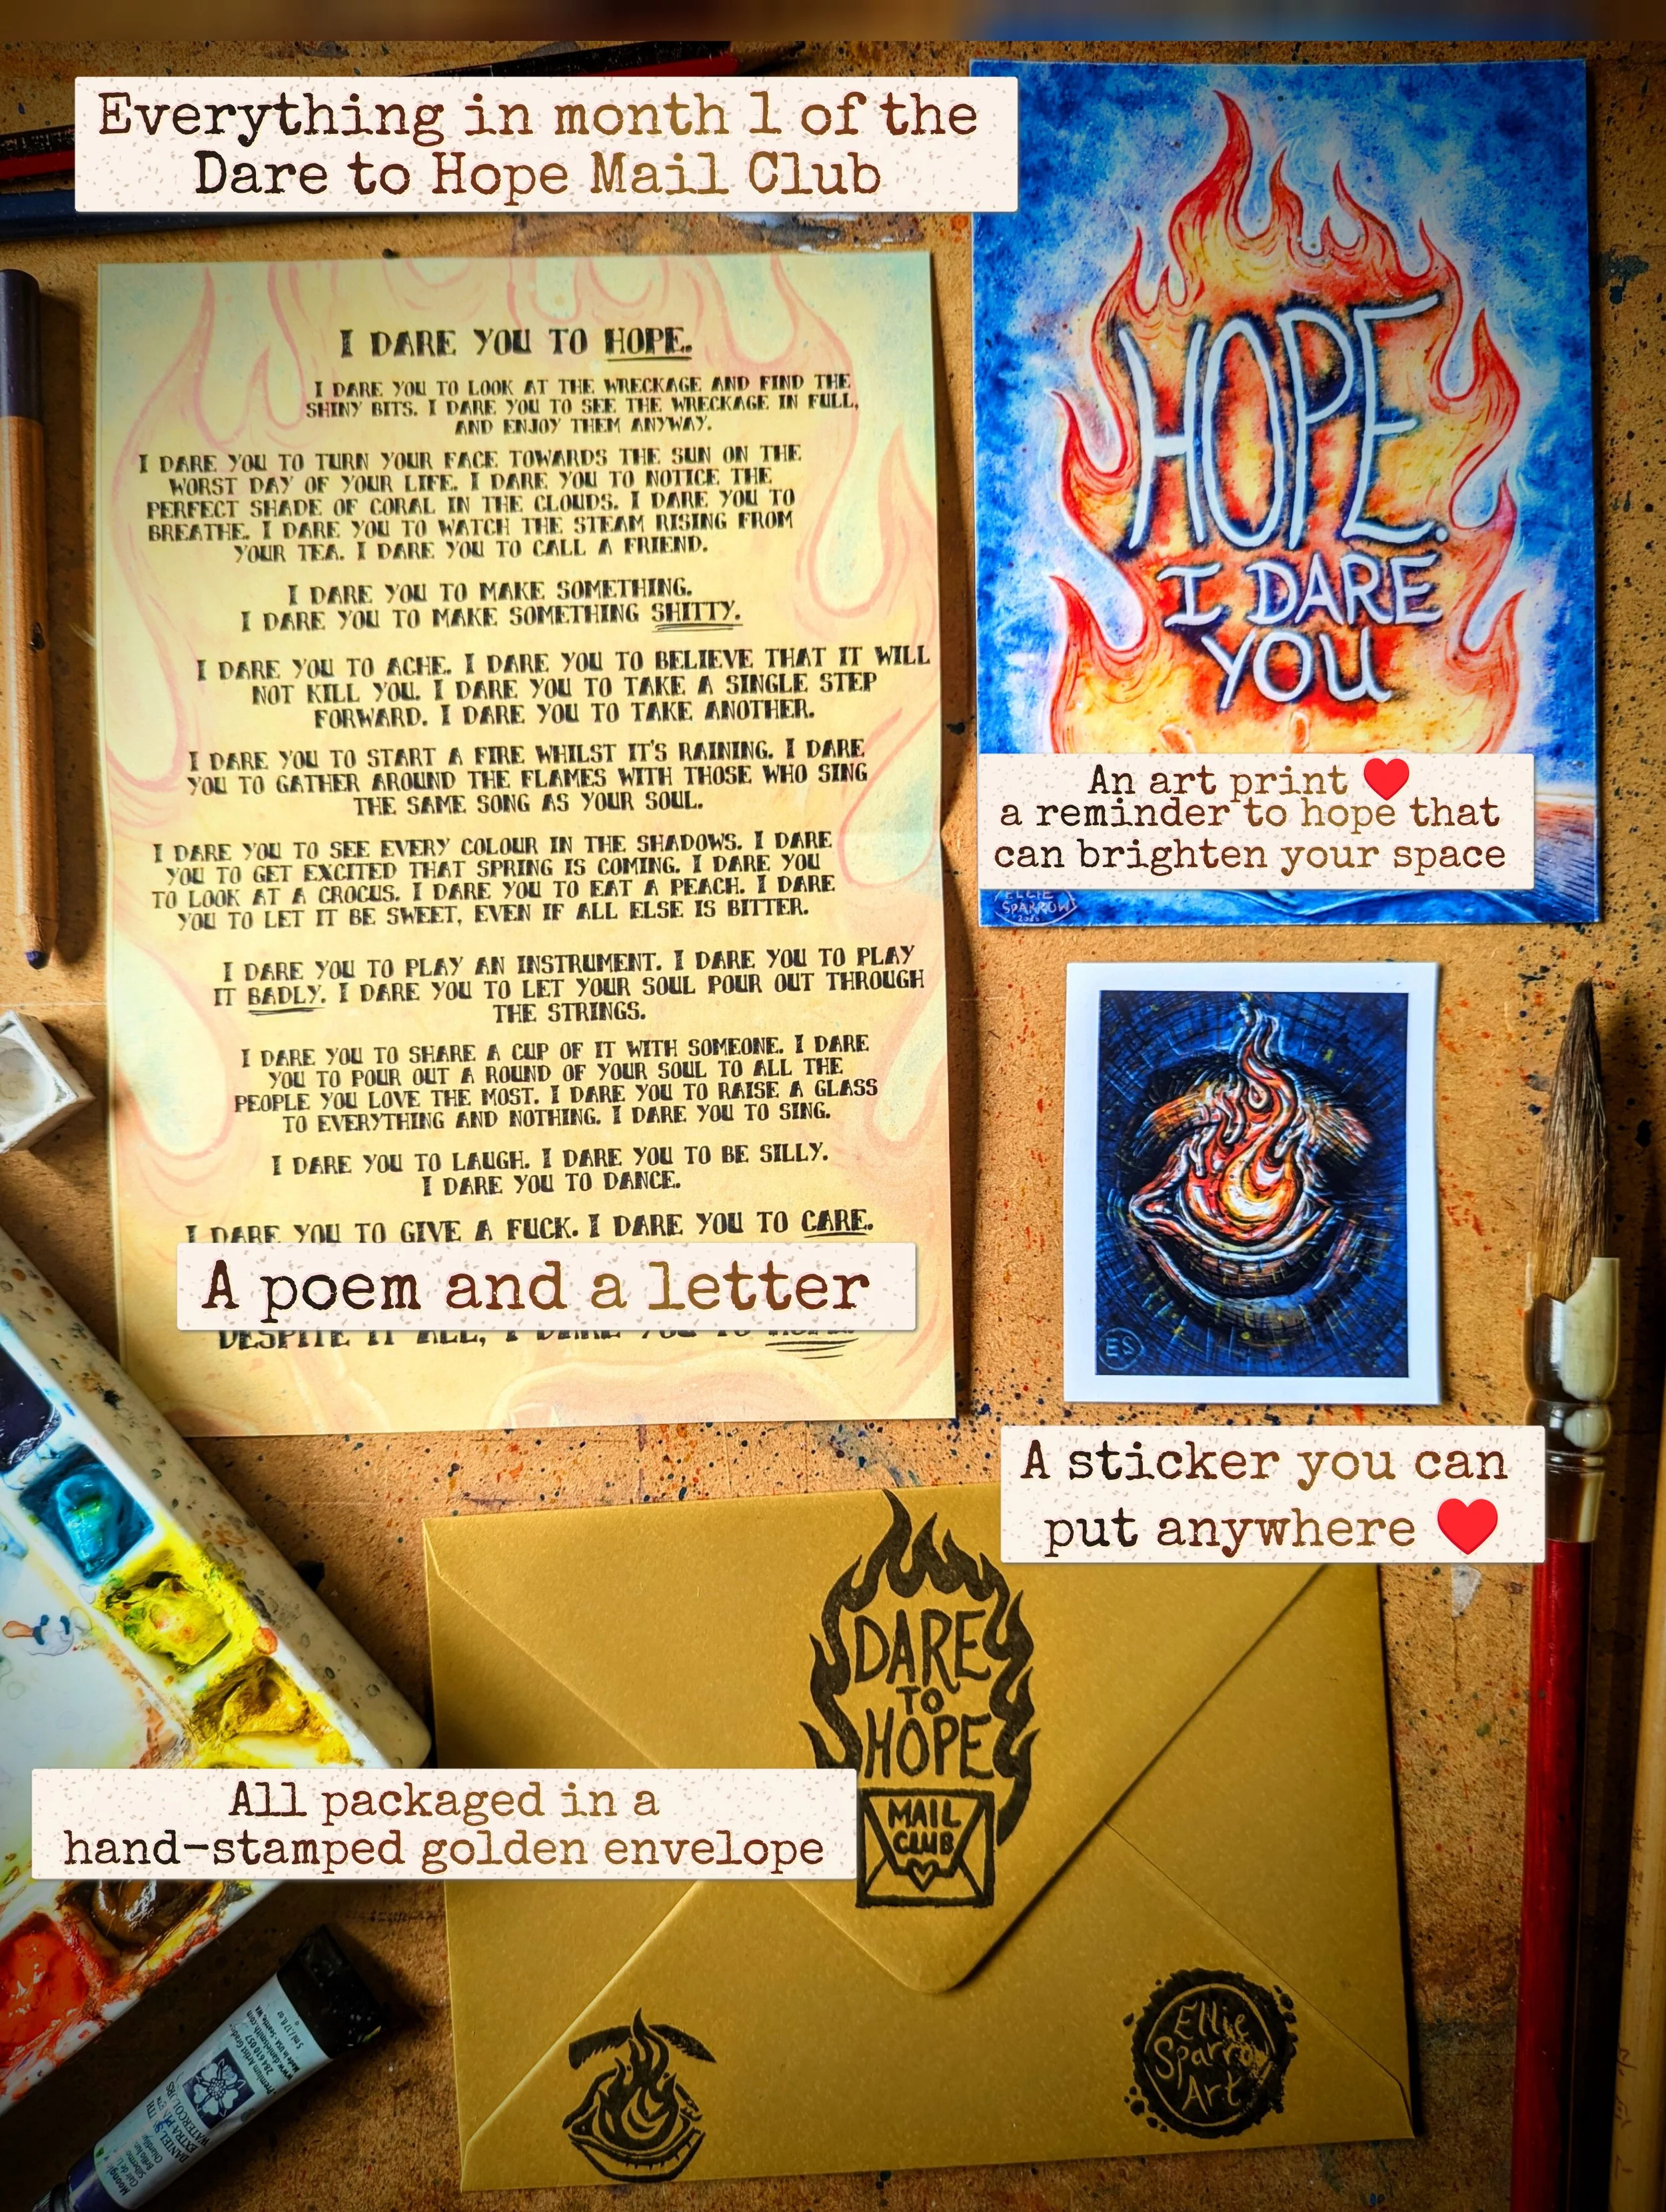 Everything in month 1 of the
Dare to Hope Mail Club
I DARE YOU TO HOPE.
I DARE YOU TO LOOK AT THE WRECKAGE AND FIND THE
SHINY BITS. I DARE YOU TO SEE THE WRECKAGE IN FULL,
AND ENJOY THEM ANYWAY.
I DARE YOU TO TURN YOUR FACE TOWARDS THE SUN ON THE
WORST DAY OF YOUR LIFE. I DARE YOU TO NOTICE THE
PERFECT SHADE OF CORAL IN THE CLOUDS. I DARE YOU TO
BREATHE. I DARE YOU TO WATCH THE STEAM RISING FROM
YOUR TEA. I DARE YOU TO CALL A FRIEND.
I DARE YOU TO MAKE SOMETHING.
I DARE YOU TO MAKE SOMETHING SHITTY.
I DARE YOU TO ACHE. I DARE YOU TO BELIEVE THAT IT WILL
NOT KILL YOU. I DARE YOU TO TAKE A SINGLE STEP
FORWARD. I DARE YOU TO TAKE ANOTHER.
I DARE YOU TO START A FIRE WHILST IT'S RAINING. I DARE
YOU TO GATHER AROUND THE FLAMES WITH THOSE WHO SING
THE SAME SONG AS YOUR SOUL.
I DARE YOU TO SEE EVERY COLOUR IN THE SHADOWS. I DARE
YOU TO GET EXCITED THAT SPRING IS COMING. I DARE YOU
TO LOOK AT A CROCUS. I DARE YOU TO EAT A PEACH. I DARE
YOU TO LET IT BE SWEET, EVEN IF ALL ELSE IS BITTER.
I DARE YOU TO PLAY AN INSTRUMENT. I DARE YOU TO PLAY
IT BADLY. I DARE YOU TO LET YOUR SOUL POUR OUT THROUGH
THE STRINGS.
I DARE YOU TO SHARE A CUP OF IT WITH SOMEONE. I DARE
YOU TO POUR OUT A ROUND OF YOUR SOUL TO ALL THE
PEOPLE YOU LOVE THE MOST. I DARE YOU TO RAISE A GLASS
TO EVERYTHING AND NOTHING. I DARE YOU TO SING.
I DARE YOU TO LAUGH. I DARE YOU TO BE SILLY.
I DARE YOU TO DANCE.
I DARE YOU TO GIVE A FUCK. I DARE YOU TO CARE.
A poem and a letter
DESPITE IT ALL, I DARE YOU TO HOPE.
HOPE.
I DARE
YOU
An art print ❤️
a reminder to hope that
can brighten your space
ELLIE
SPARROW
ES
A sticker you can
put anywhere ❤️
DARE
TO
HOPE
MAIL
CLUB
All packaged in a
hand-stamped golden envelope
Ellie
Sparrow
Art
DANIEL SMITH
EXTRA FINE
WATERCOLORS
Premium Artist Grade
284 610 057
www.danielsmith.com
Made in USA